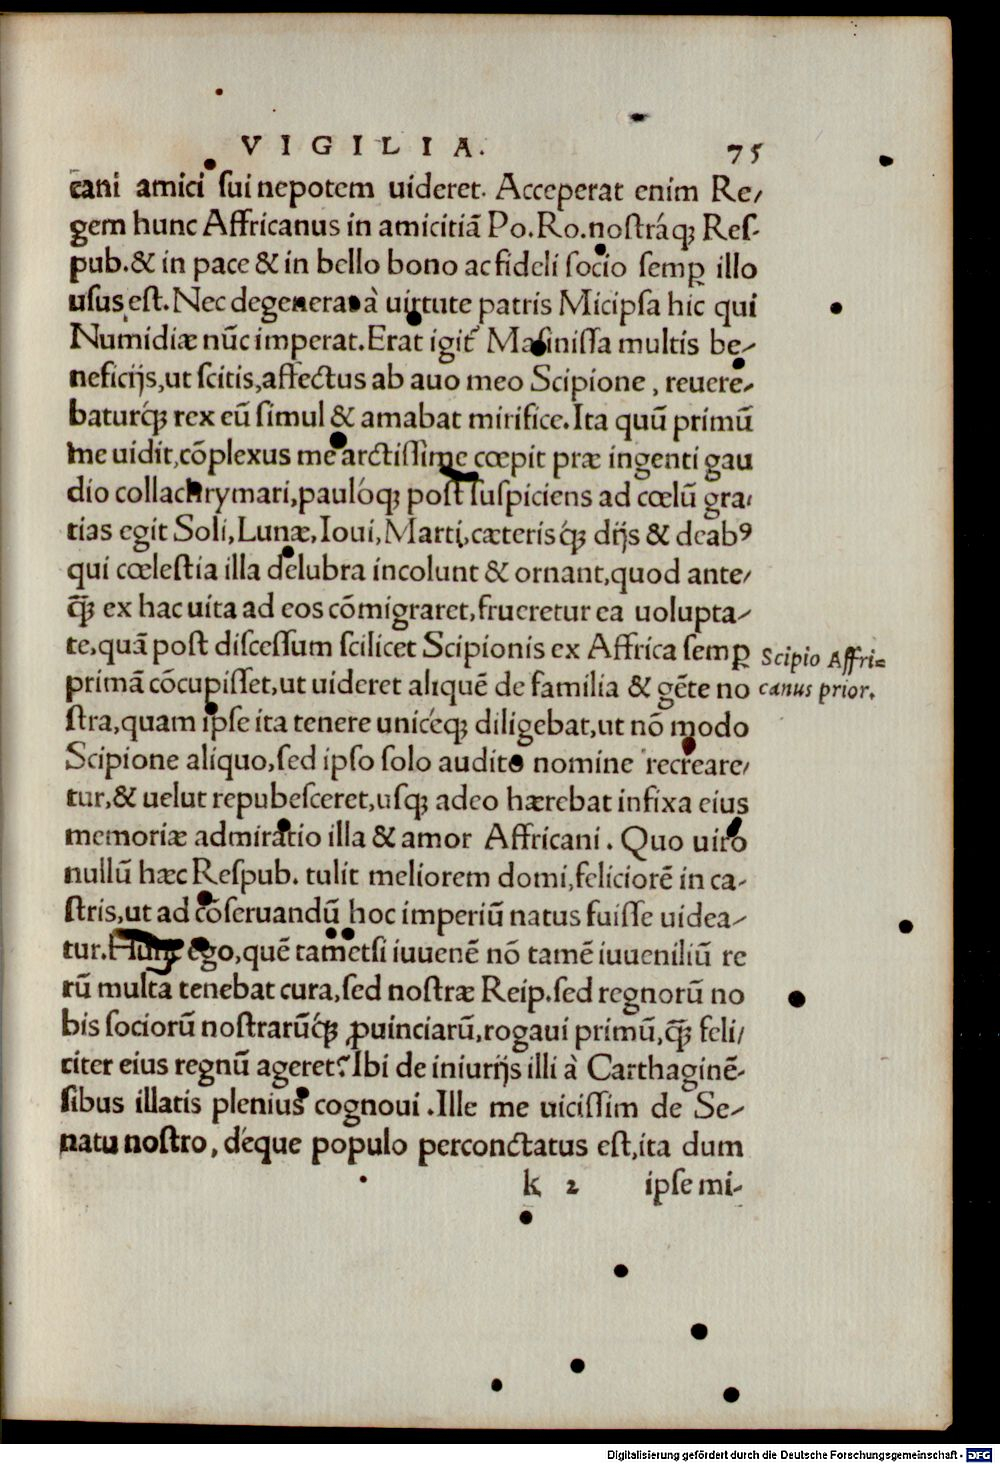 VIGILIA. 75
cani amici sui nepotem uideret. Acceperat enim Re/
gem hunc Affricanus in amicitiā Po.Ro.nostráqꝫ Res-
pub.& in pace & in bello bono ac fideli socio semꝑ illo
usus est. Nec degenerat à uirtute patris Micipsa hic qui
Numidiæ nūc imperat. Erat igit᷑ Masinissa multis be-
neficijs, ut scitis, affectus ab auo meo Scipione, reuere-
baturq́ꝫ rex eū simul & amabat mirifice. Ita quū primū
me uidit, cōplexus me arctissime cœpit præ ingenti gau
dio collachrymari, paulóqꝫ post suspiciens ad cœlū gra/
tias egit Soli, Lunæ, Ioui, Marti, cæterisq́ꝫ dijs & deabꝰ
qui cœlestia illa delubra incolunt & ornant, quod ante/
q̄ꝫ ex hac uita ad eos cōmigraret, frueretur ea uolupta-
te, quā post discessum scilicet Scipionis ex Affrica semꝑ
primā cōcupisset, ut uideret aliquē de familia & gēte no
stra, quam ipse ita tenere unicéqꝫ diligebat, ut nō modo
Scipione aliquo, sed ipso solo audito nomine recreare/
tur, & uelut repubesceret, usqꝫ adeo hærebat infixa eius
memoriæ admiratio illa & amor Affricani. Quo uiro
nullū hæc Respub. tulit meliorem domi, feliciorē in ca-
stris, ut ad cōseruandū hoc imperiū natus fuisse uidea-
tur. Hunc ego, quē tametsi iuuenē nō tamē iuueniliū re
rū multa tenebat cura, sed nostræ Reip. sed regnorū no
bis sociorū nostrarūq́ꝫ ꝓuinciarū, rogaui primū, q̄ꝫ feli/
citer eius regnū ageret? Ibi de iniurijs illi à Carthaginē-
sibus illatis plenius cognoui. Ille me uicissim de Se-
natu nostro, déque populo perconctatus est, ita dum
k 2 ipse mi-
Scipio Affri=
canus prior.
Digitalisierung gefördert durch die Deutsche Forschungsgemeinschaft - DFG